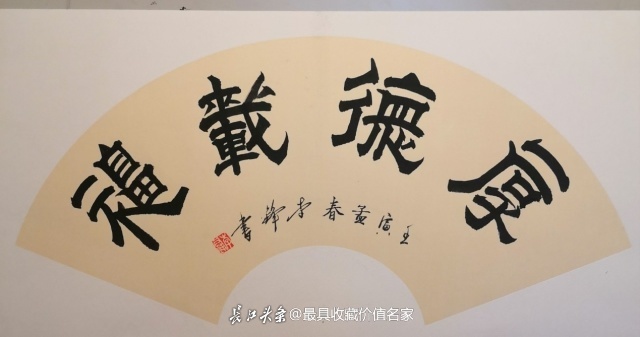 厚德載福
壬寅孟春李書
長江头条@最具收藏价值名家